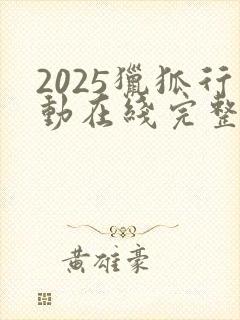 2025獵狐行
動在綫完整
黃雄豪